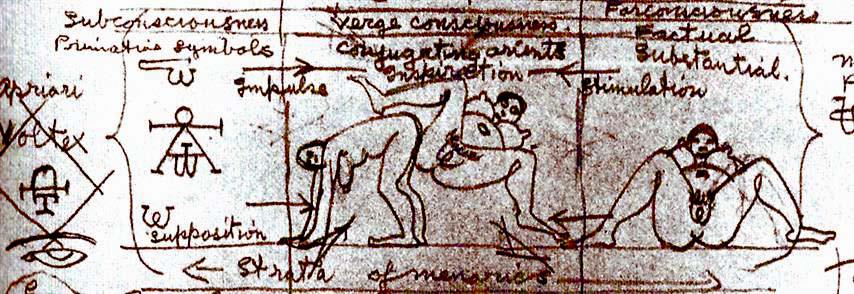 Subconsciousness
Primative symbols
Verge consciousness
Conjugating arients
Inspiration
Forconsciousness
Factual
Substantial.
Impulse
Stimulation
apriari
Voltex
W
Supposition
Strata of memories